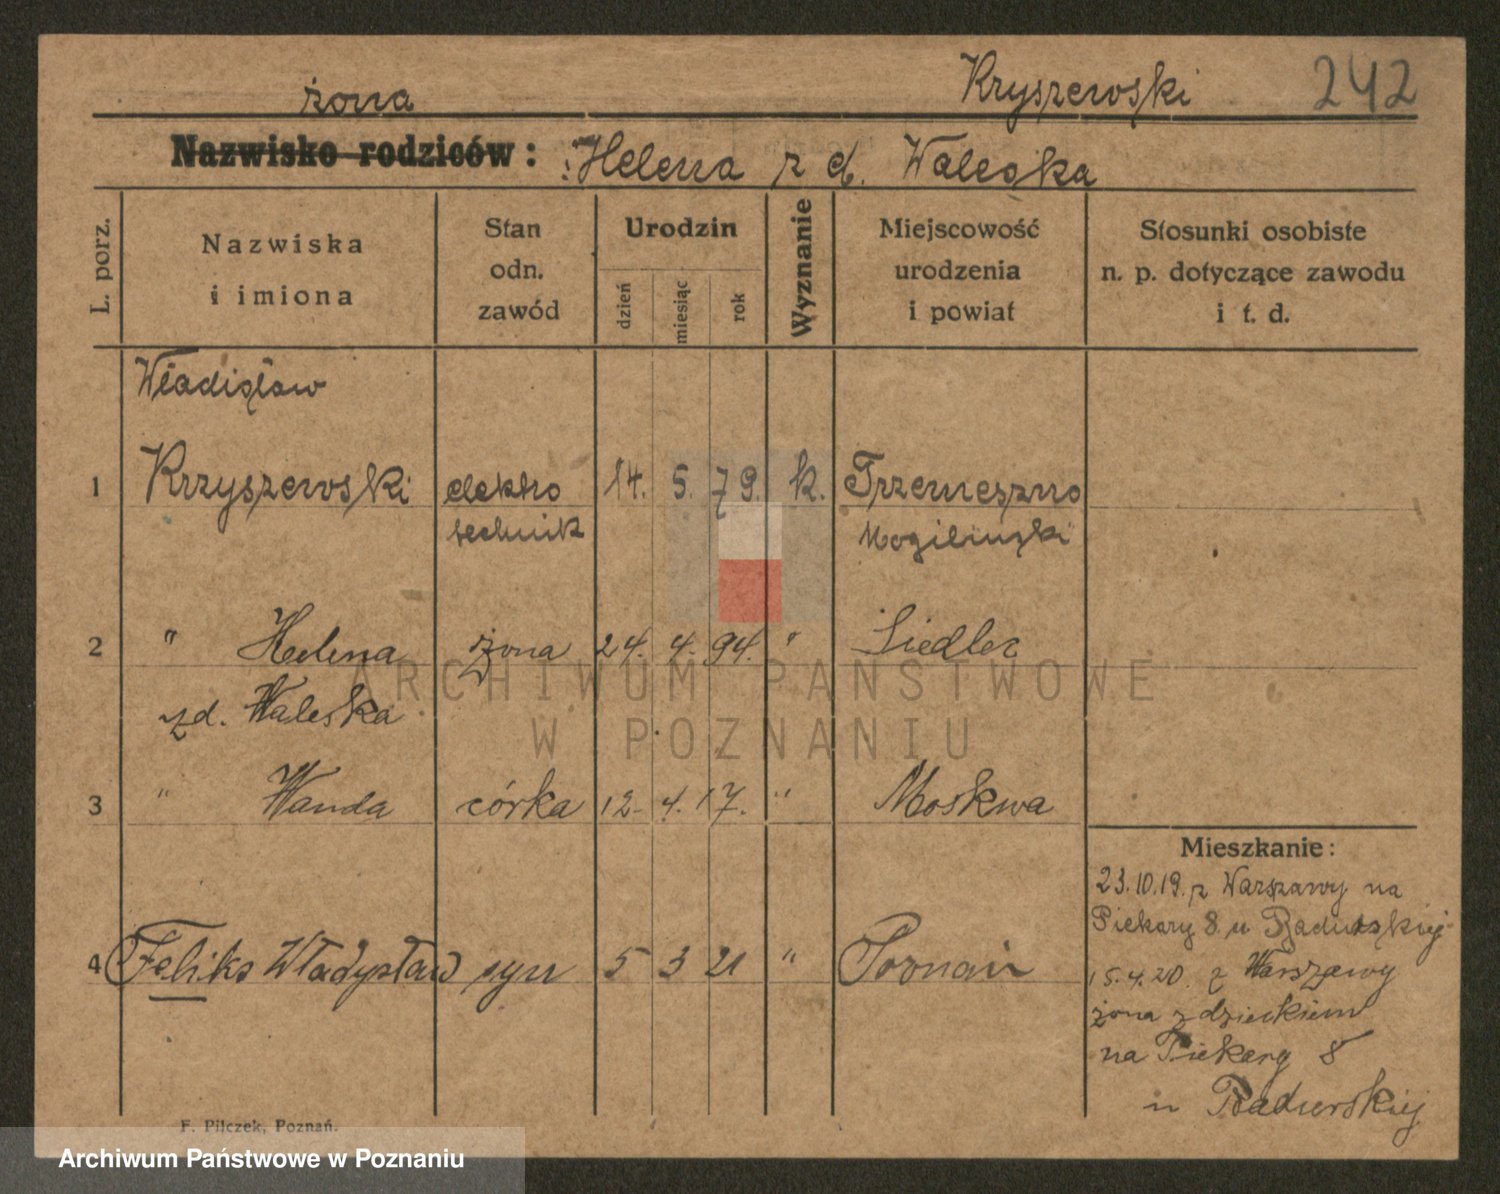 żona Kryszewski 242
Nazwisko rodziców : Helena z d. Waleska
L. porz.
Nazwiska
i imiona
Stan
odn.
zawód
Urodzin
dzień
miesiąc
rok
Wyznanie
Miejscowość
urodzenia
i powiat
Stosunki osobiste
n. p. dotyczące zawodu
i t. d.
Władisław
1 Krzyszewski elektro 14. 5. 79. k. Trzemeszno
technik Mogilinski
2 " Helena żona 24. 4. 94. " Siedlec
z d. Waleska
3 " Wanda córka 12. 4. 17. " Moskwa
4 Feliks Władysław syn 5 3 21 " Poznań
Mieszkanie :
23.10.19. z Warszawy na
Piekary 8. u
15.4.20. z Warszawy
żona z dzieckiem
na Piekary 8
u
F. Pilczek, Poznań.
ARCHIWUM PAŃSTWOWE
W POZNANIU
Archiwum Państwowe w Poznaniu